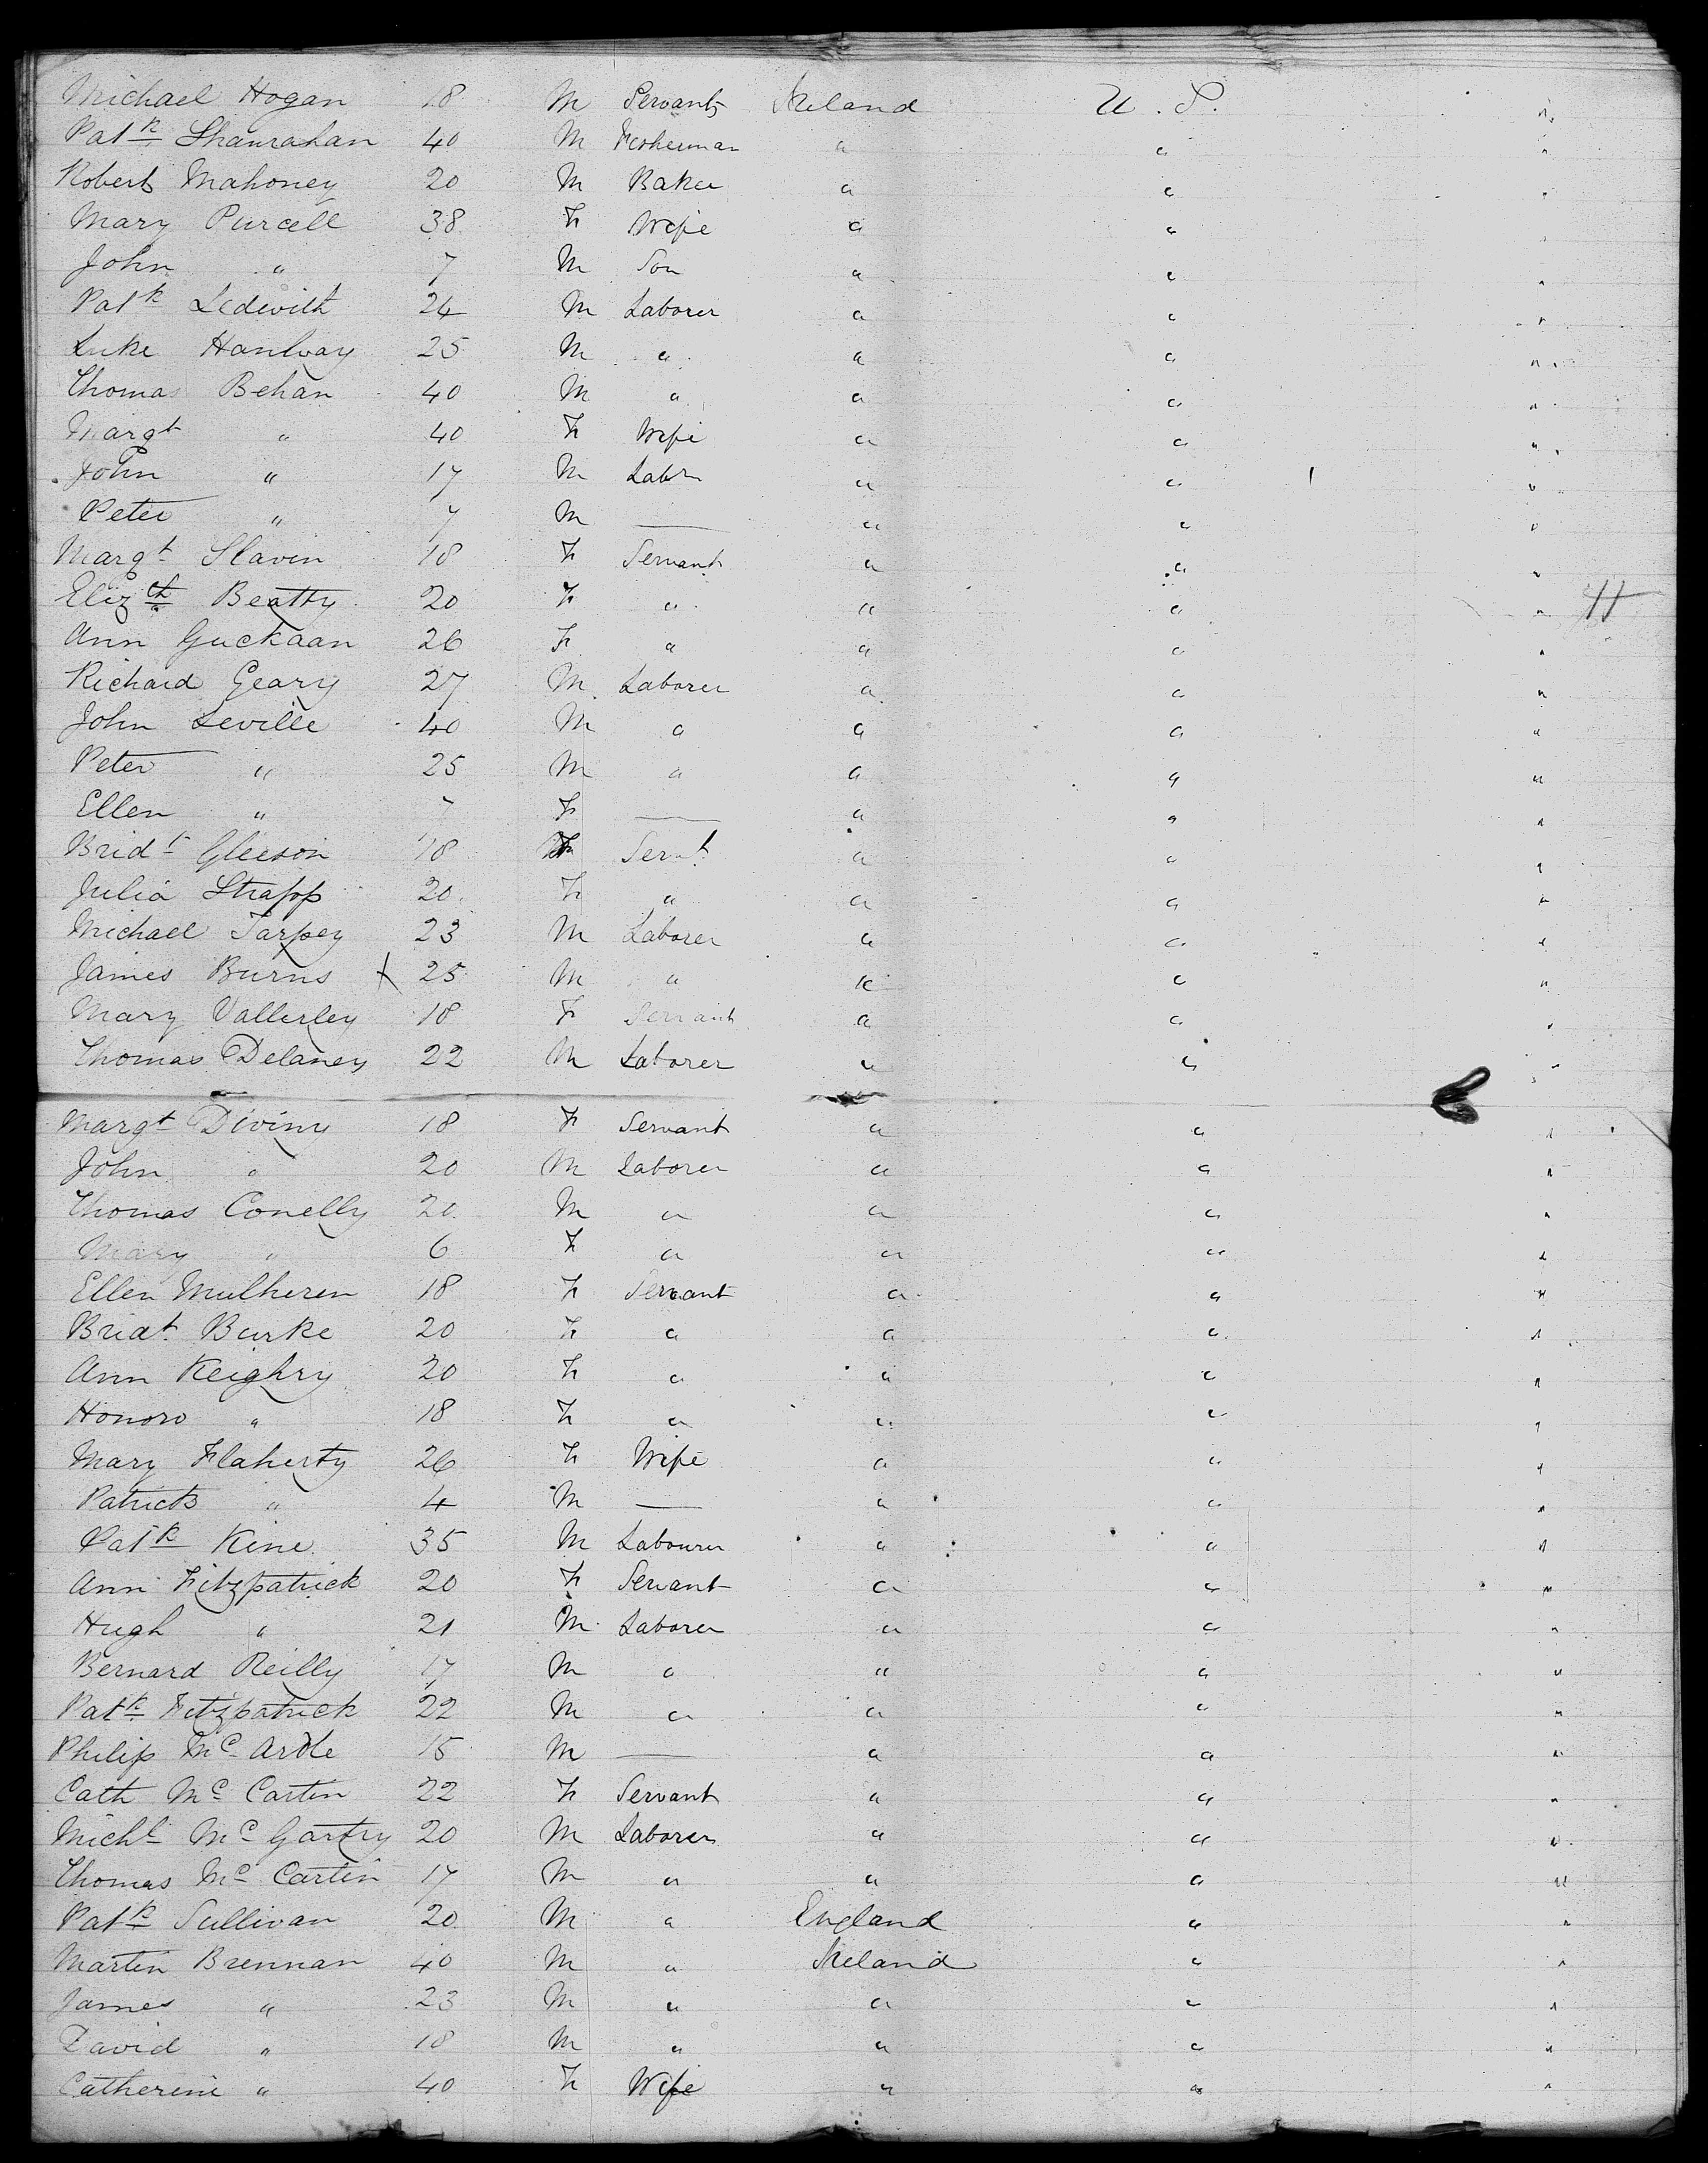 Michael Hogan 18 M Servant Ireland U. S. "
Pat^k Shanrahan 40 M Fisherman " " "
Robert Mahoney 20 M Baker " " "
Mary Purcell 38 F Wife " " "
John " 7 M Son " " "
Pat^k Ledwith 24 M Laborer " " "
Luke Hanlvay 25 M " " " "
Thomas Behan 40 M " " " "
Marg^t " 40 F Wife " " "
John " 17 M Labr " " "
Peter " 7 M — " " "
Marg^t Slavin 18 F Servant " " "
Eliz^th Beatty 20 F " " " "
Ann Guckaan 26 F " " " "
Richard Geary 27 M Laborer " " "
John Leville 40 M " " " "
Peter " 25 M " " " "
Ellen " 7 F — " " "
Brid^t Gleeson 18 F Serv^t " " "
Julia Strapp 20 F " " " "
Michael Tarpey 23 M Laborer " " "
James Burns 25 M " " " "
Mary Vallerley 18 F Servant " " "
Thomas Delaney 22 M Laborer " " "
Marg^t Diviny 18 F Servant " " "
John " 20 M Laborer " " "
Thomas Conelly 20 M " " " "
Mary " 6 F " " " "
Ellen Mulheren 18 F Servant " " "
Brid^t Burke 20 F " " " "
Ann Keighry 20 F " " " "
Honoro " 18 F " " " "
Mary Flaherty 26 F Wife " " "
Patrick " 4 M — " " "
Pat^k Kine 35 M Labourer " " "
Ann Fitzpatrick 20 F Servant " " "
Hugh " 21 M Laborer " " "
Bernard Reilly 17 M " " " "
Pat^k Fitzpatrick 22 M " " " "
Philip M^c Ardle 15 M — " " "
Cath M^c Cartin 22 F Servant " " "
Mich^l M^c Gartry 20 M Laborer " " "
Thomas M^c Cartin 17 M " " " "
Pat^k Sullivan 20 M " England " "
Martin Brennan 40 M " Ireland " "
James " 23 M " " " "
David " 18 M " " " "
Catherine " 40 F Wife " " "